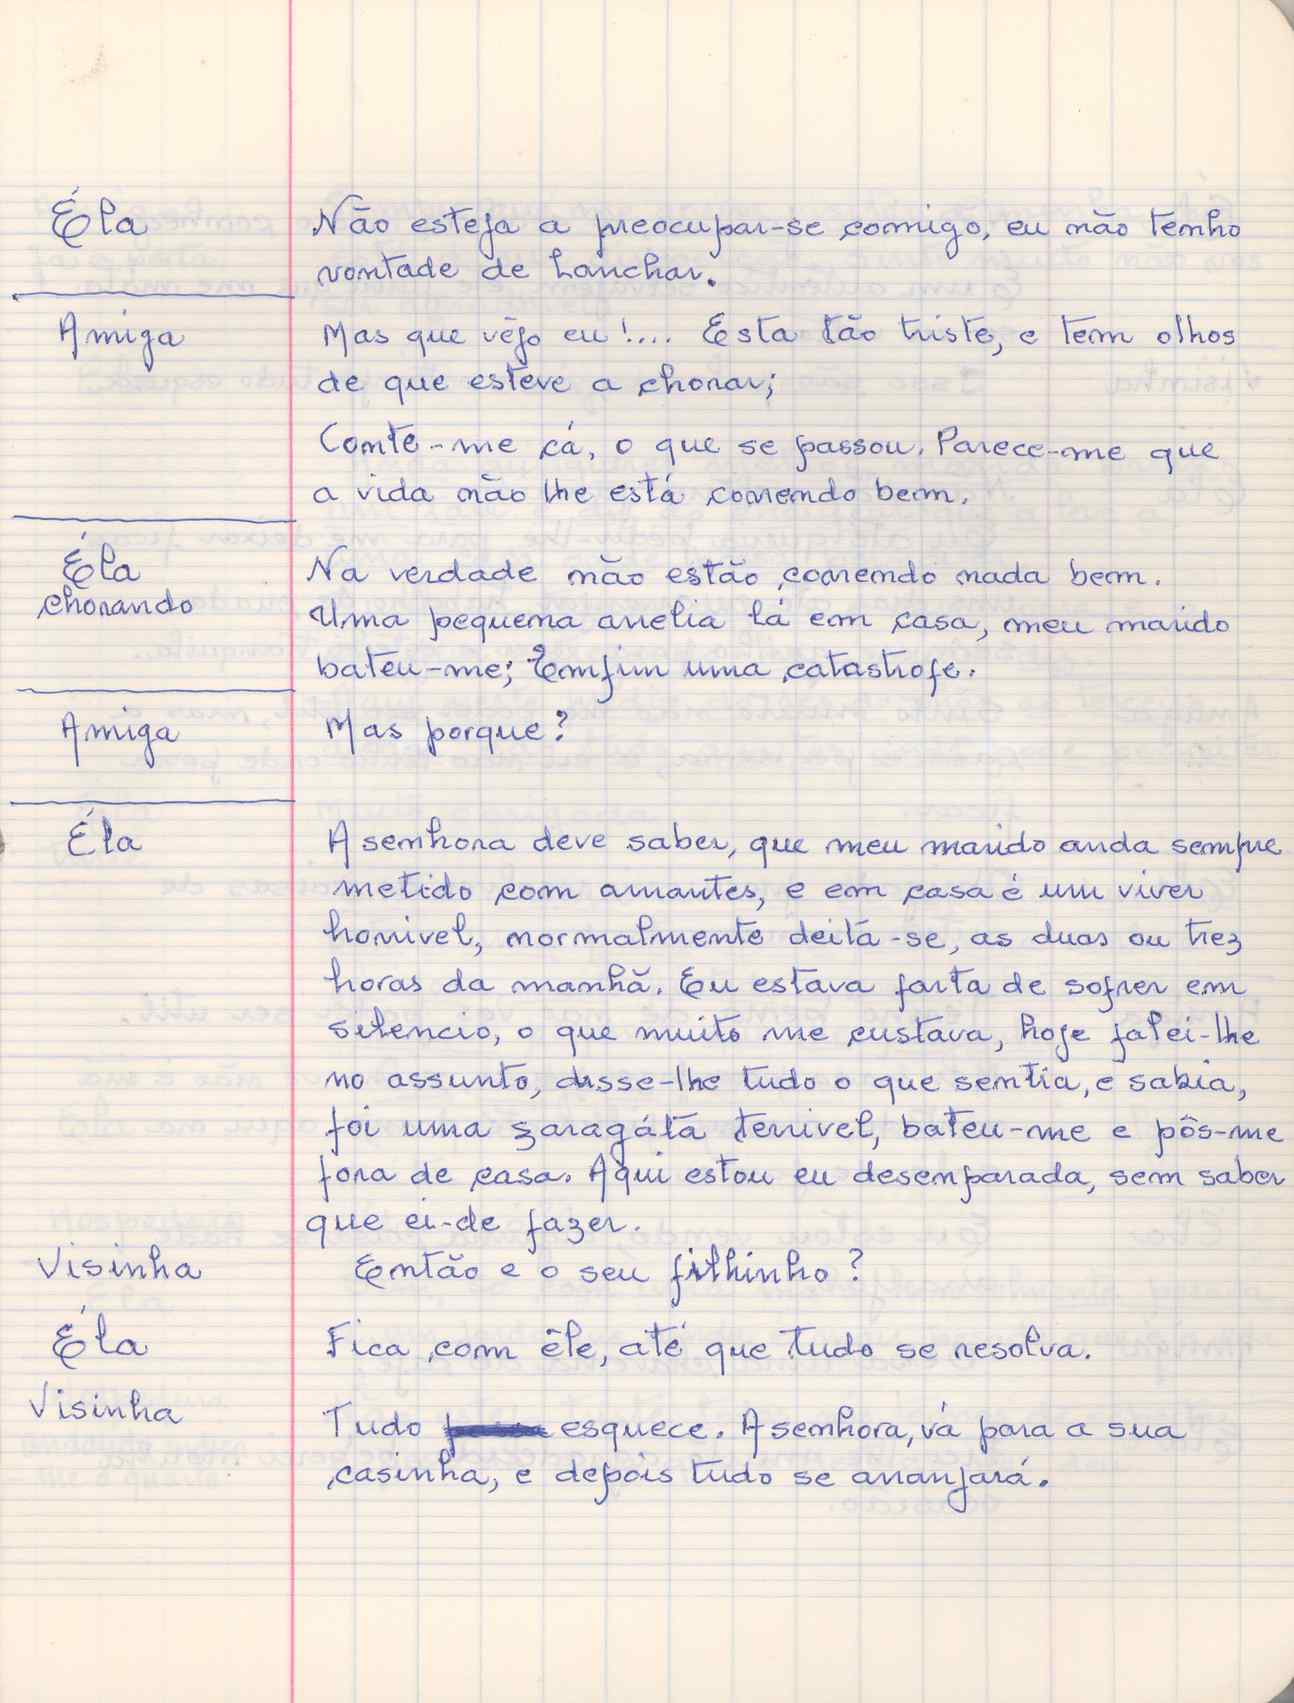 Éla Não esteja a preocupar-se comigo, eu não tenho
vontade de lanchar.
Amiga Mas que vêjo eu!.... Esta tão triste, e tem olhos
de que esteve a chorar;
Conte-me cá, o que se passou. Parece-me que
a vida não lhe está correndo bem.
Éla Na verdade não estão correndo nada bem.
chorando Uma pequena arrelia lá em casa, meu marido
bateu-me; Emfim uma catastrofe.
Amiga Mas porque?
Éla A senhora deve saber, que meu marido anda sempre
metido com amantes, e em casa é um viver
horrivel, normalmente deitá-se, as duas ou trez
horas da manhã. Eu estava farta de sofrer em
silencio, o que muito me custava, hoje falei-lhe
no assunto, disse-lhe tudo o que sentia, e sabia,
foi uma zaragátá terrivel, bateu-me e pôs-me
fora de casa. Aqui estou eu desemparada, sem saber
que ei-de fazer.
Visinha Então e o seu filhinho?
Éla Fica com êle, até que tudo se resolva.
Visinha Tudo esquece. A senhora, vá para a sua
casinha, e depois tudo se arranjará.